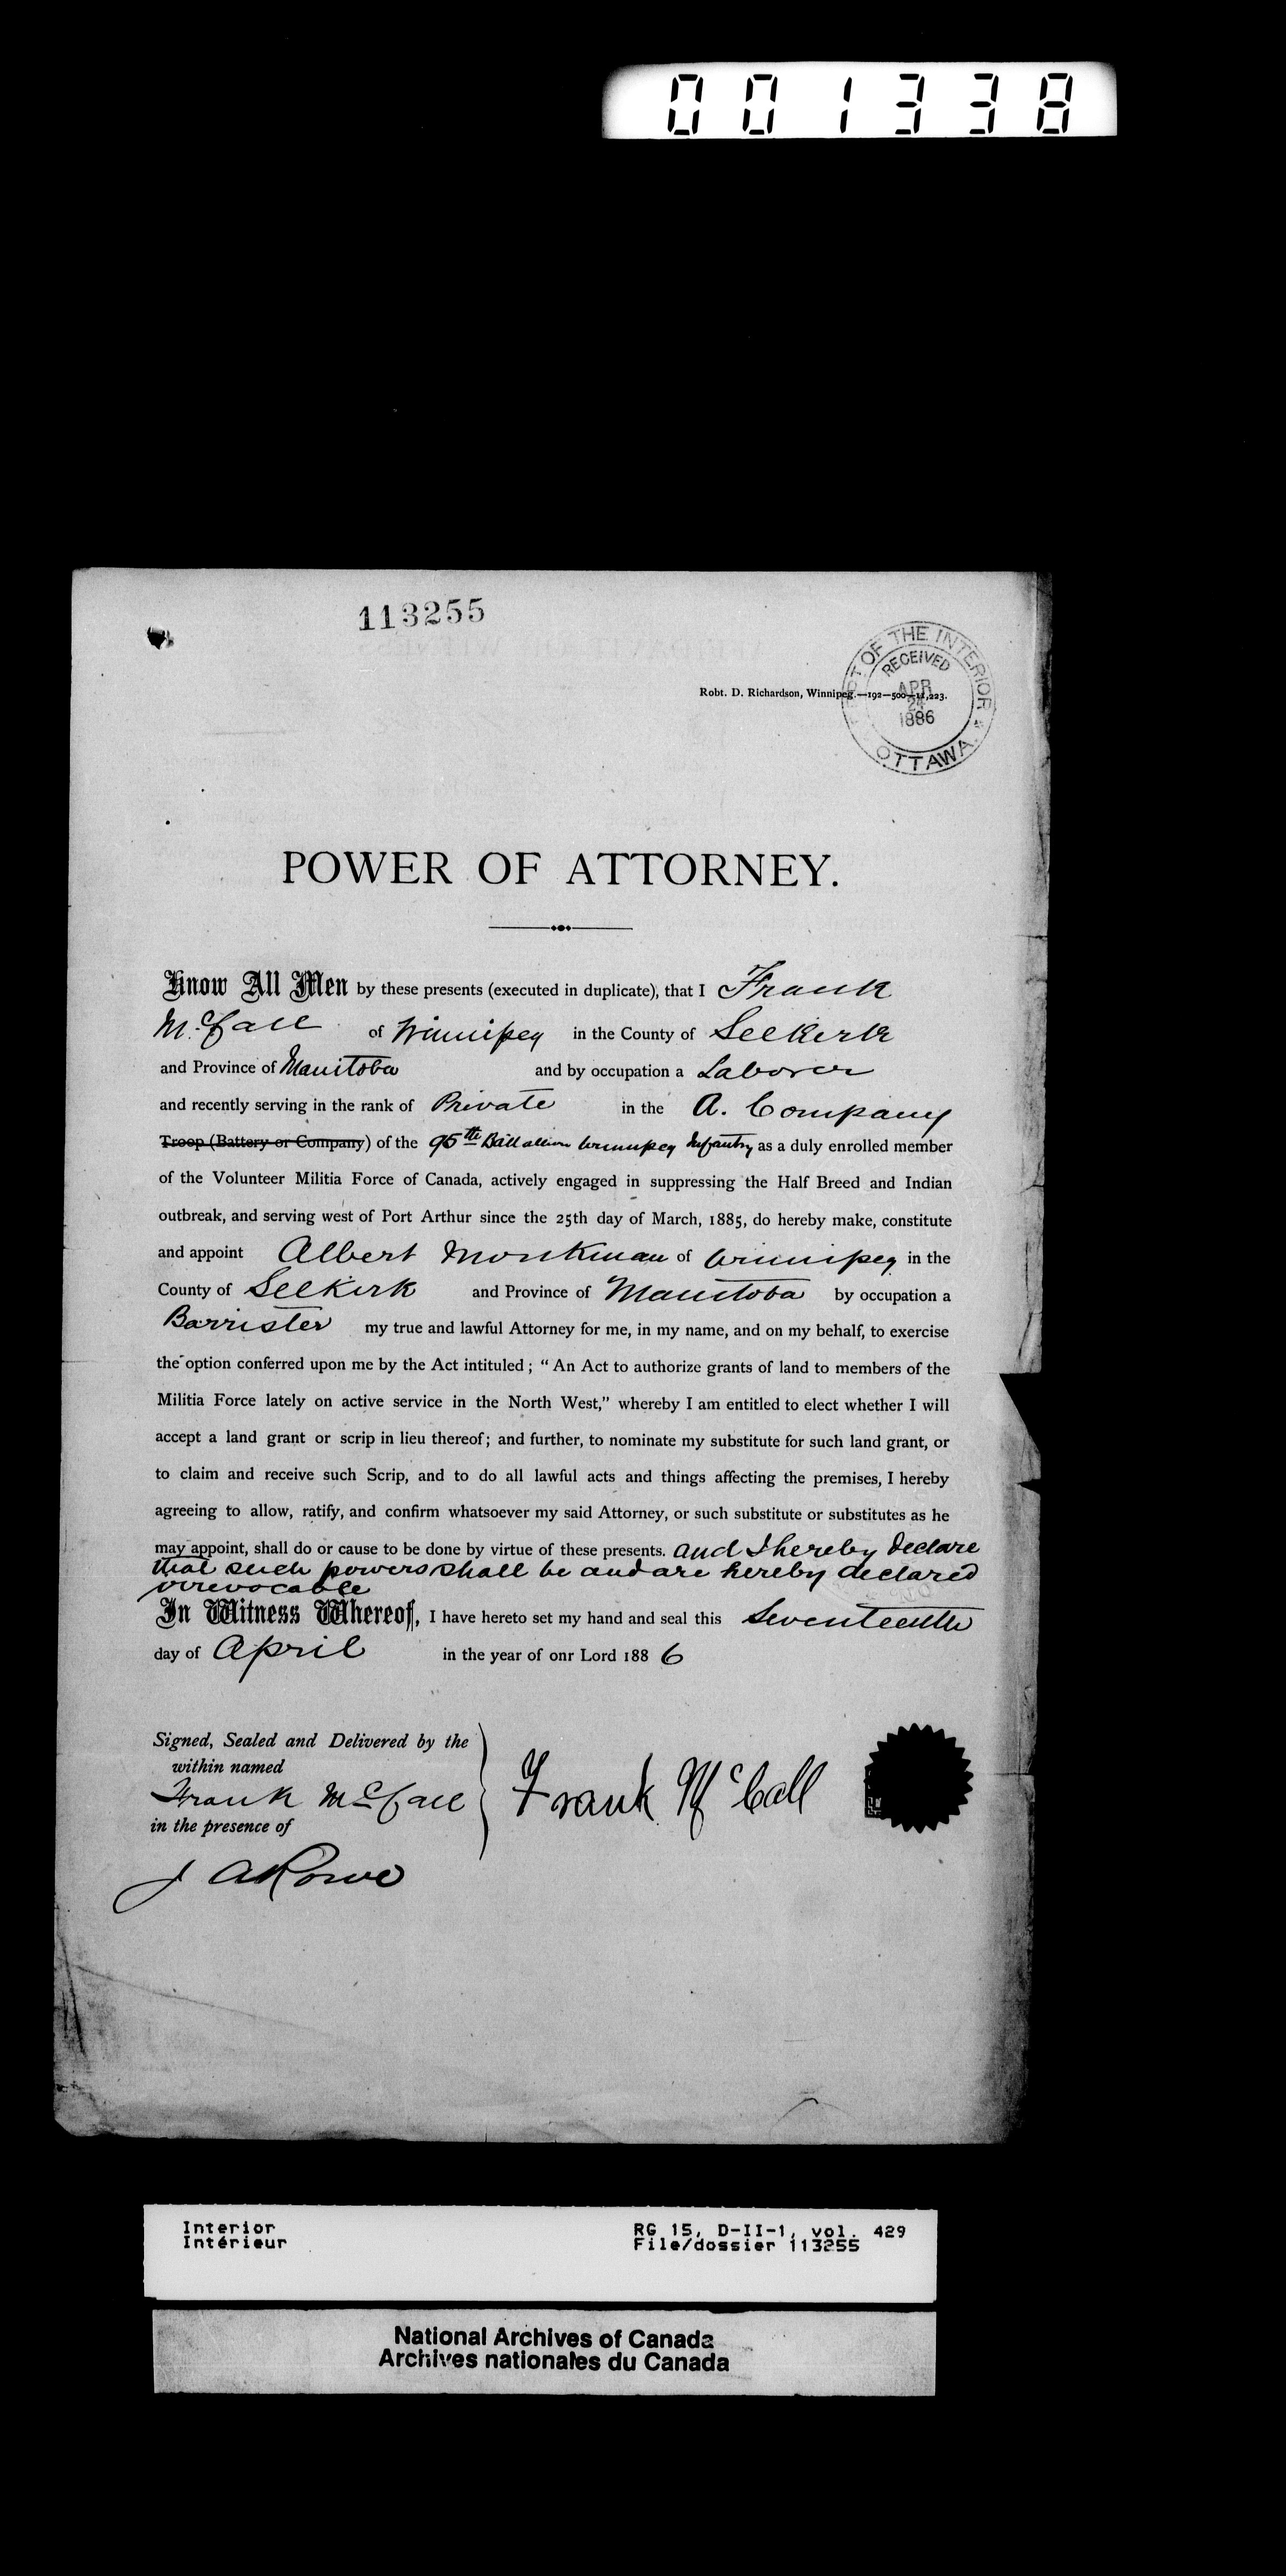 001338
113255
DEPT OF THE INTERIOR
RECEIVED
APR
24
1886
OTTAWA
Robt. D. Richardson, Winnipeg.—192—500—11,223.
POWER OF ATTORNEY.
Know All Men by these presents (executed in duplicate), that I Frank
McCall of Winnipeg in the County of Selkirk
and Province of Manitoba and by occupation a Laborer
and recently serving in the rank of Private in the A. Company
Troop (Battery or Company) of the 95th Battallion Winnipeg Infantry as a duly enrolled member
of the Volunteer Militia Force of Canada, actively engaged in suppressing the Half Breed and Indian
outbreak, and serving west of Port Arthur since the 25th day of March, 1885, do hereby make, constitute
and appoint Albert Monkman of Winnipeg in the
County of Selkirk and Province of Manitoba by occupation a
Barrister my true and lawful Attorney for me, in my name, and on my behalf, to exercise
the option conferred upon me by the Act intituled; "An Act to authorize grants of land to members of the
Militia Force lately on active service in the North West," whereby I am entitled to elect whether I will
accept a land grant or scrip in lieu thereof; and further, to nominate my substitute for such land grant, or
to claim and receive such Scrip, and to do all lawful acts and things affecting the premises, I hereby
agreeing to allow, ratify, and confirm whatsoever my said Attorney, or such substitute or substitutes as he
may appoint, shall do or cause to be done by virtue of these presents. and I hereby declare
that such powers shall be and are hereby declared
irrevocable
In Witness Whereof, I have hereto set my hand and seal this Seventeenth
day of April in the year of onr Lord 1886
Signed, Sealed and Delivered by the
within named
Frank McCall
in the presence of
Frank McCall
J A Rowe
Interior
Intérieur
RG 15, D-II-1, vol. 429
File/dossier 113255
National Archives of Canada
Archives nationales du Canada